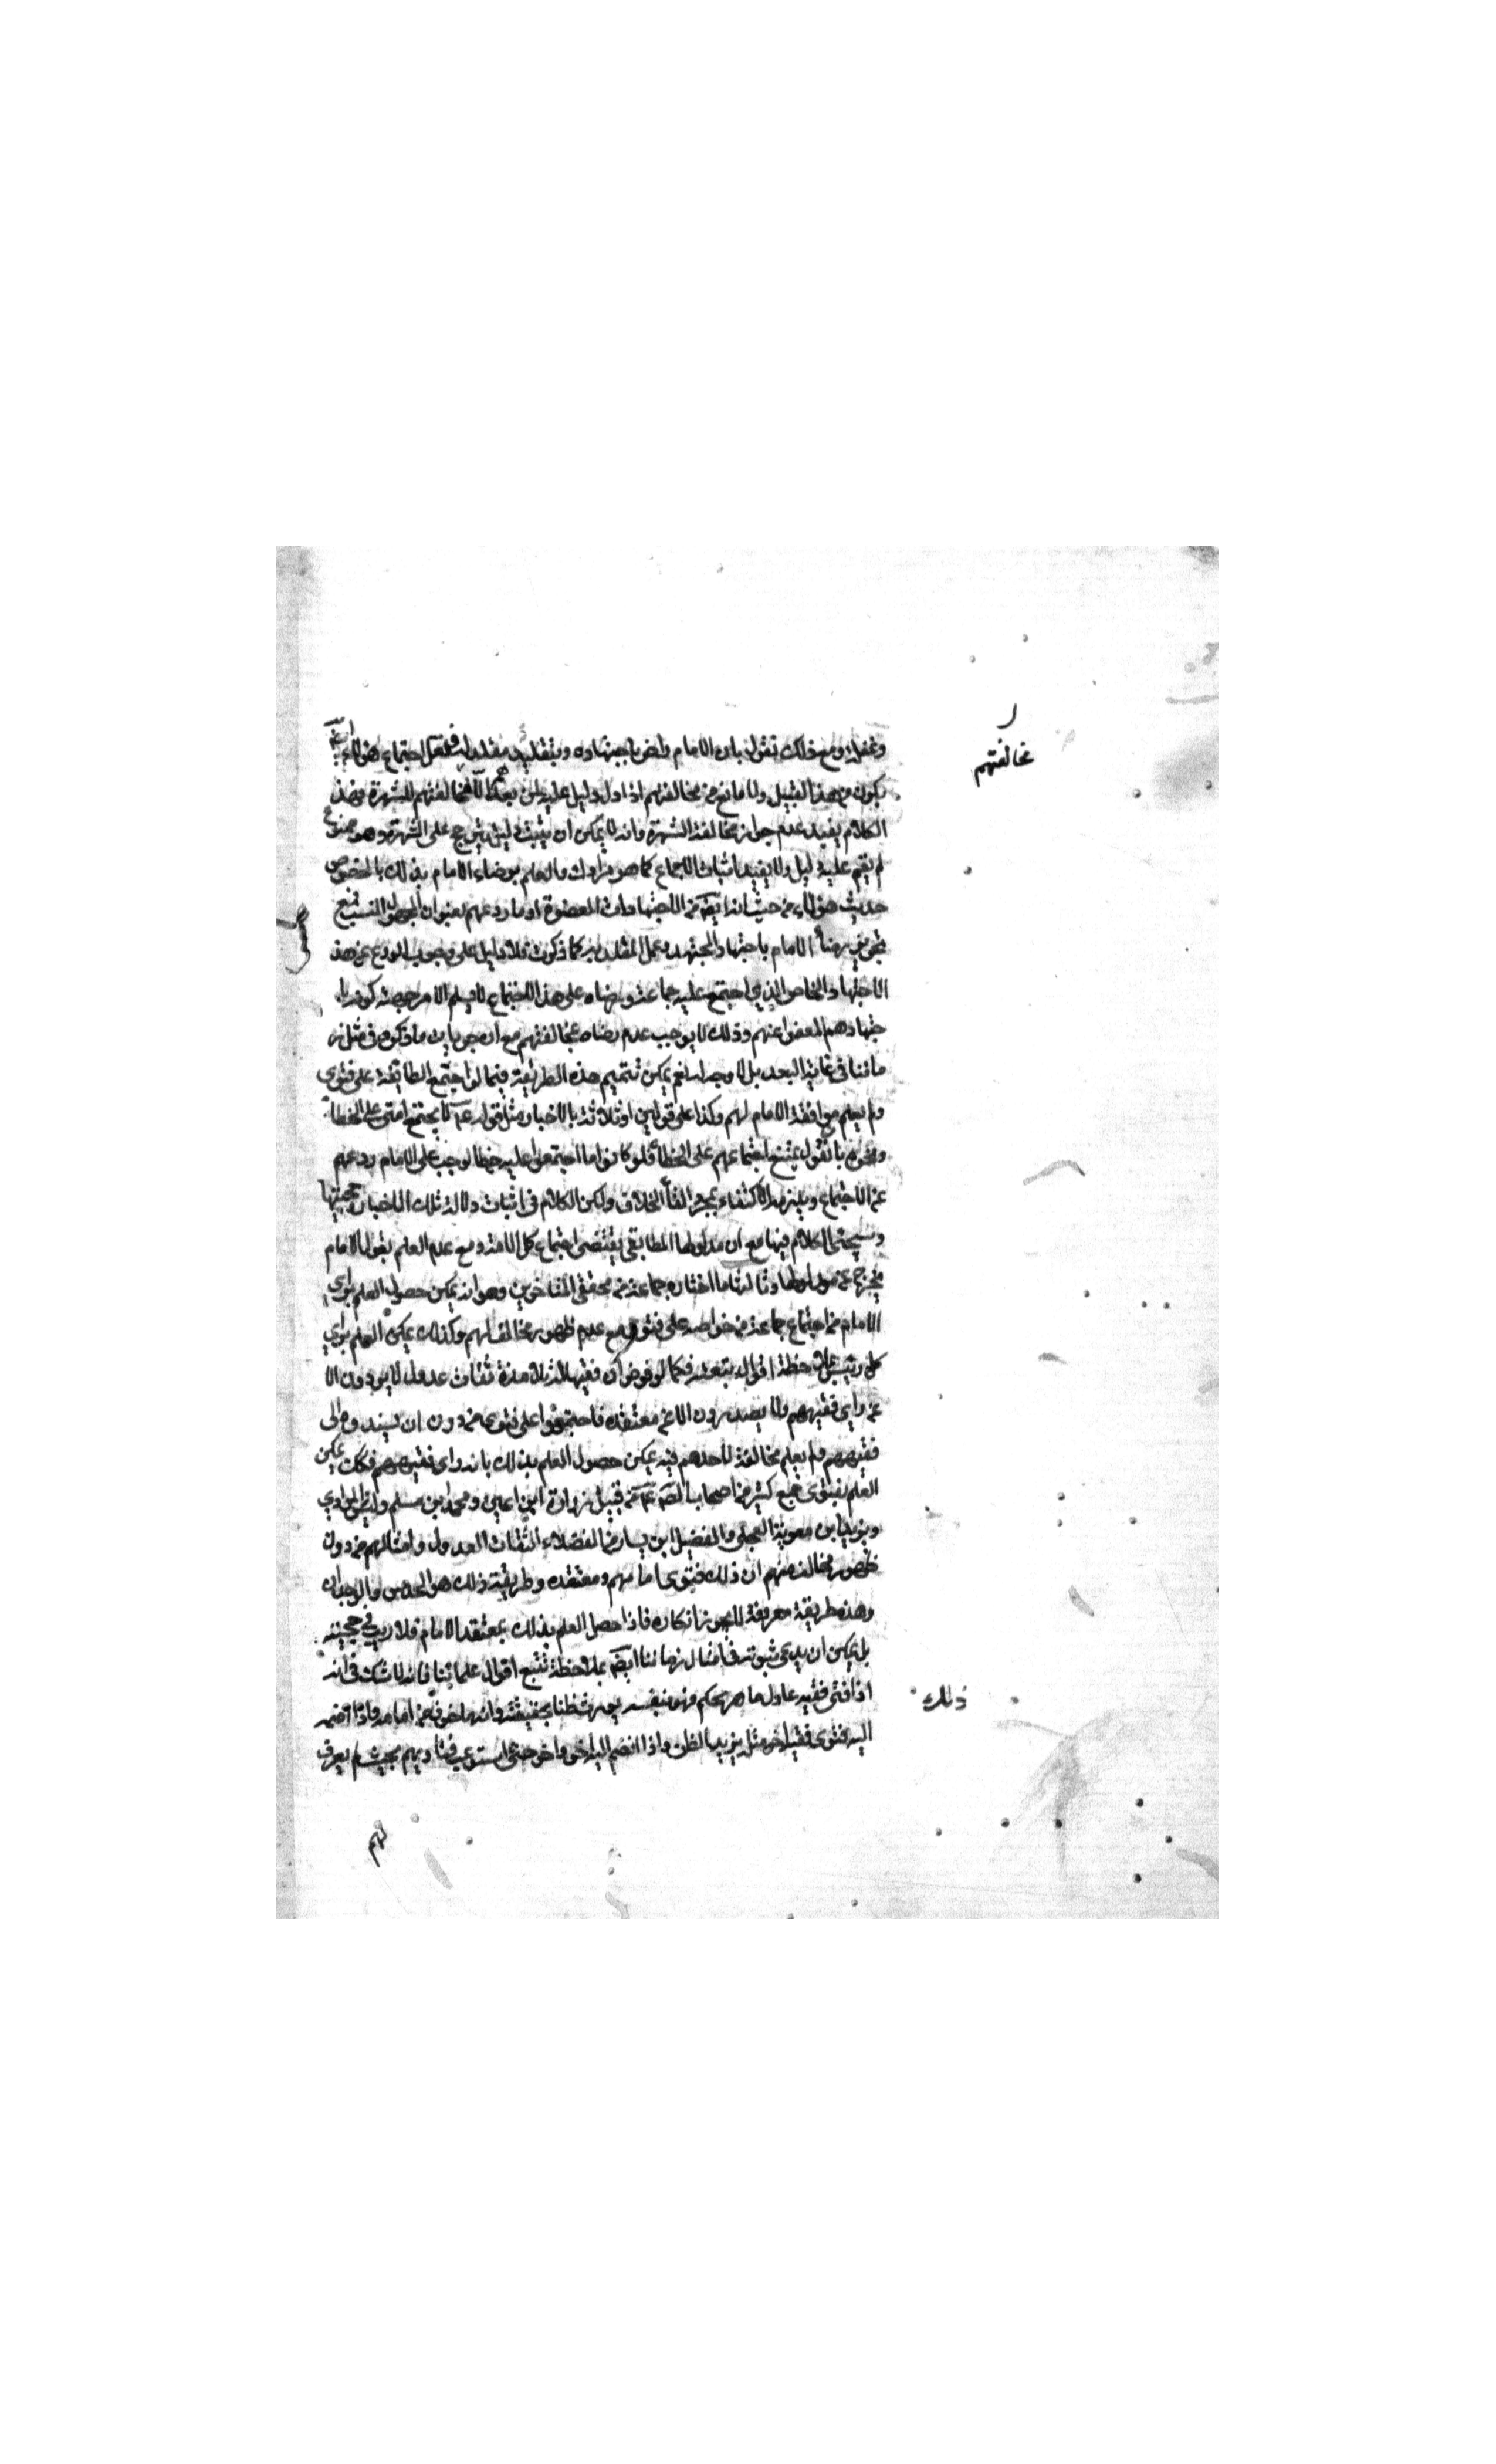 مخالفتهم
وغفلة ومع ذلك نقول بان الامام راض باجتهاده وبتقليد مقلده له فلعل اجتماع هؤلاء ايضا
يكون من هذا القبيل ولا مانع من مخالفتهم اذا دل دليل عليه لمن بعدهم الا مخالفتهم للشهرة فهذا
الكلام يفيد عدم جواز مخالفة الشهرة وانه لا يمكن ان يثبت دليل يترجح على الشهرة وهو ممنوع
لم يقم عليه دليل ولا يفيد اثبات الاجماع كما هو مرادك والعلم برضاء الامام بذلك بالخصوص
حديث هؤلاء من حيث انه ايضا من الاجتهادات المعفوة او ما ردعهم بعنوان المجهول النسب فمع
تجويز رضاء الامام باجتهاد المجتهد وعمل المقلد به كما ذكرت فلا دليل على وجوب الردع عن هذا
الاجتهاد الخاص الذي اجتمع عليه جماعة ورضاه على هذا الاجتماع لا يسلم الا من جهة كونه با
جتهادهم المعفو عنهم وذلك لا يوجب عدم رضاه بمخالفتهم مع ان جريان ما ذكره في مثل ز
ماننا في غاية البعد بل لا وجه له نعم يمكن تتميم هذه الطريقة فيما لو اجتمع الطائفة على فتوى
ولم يعلم موافقة الامام لهم وكذا على قولين او ثلاثة بالاخبار مثل قوله ع لا يجتمع امتي على الخطا
ونحوه بان نقول يمتنع اجتماعهم على الخطا فلو كانوا ما اجتمعوا عليه خطا لوجب على الامام ردعهم
عن الاجتماع ويلزمه الاكتفاء بمجرد القاء الخلاف ولكن الكلام في اثبات دلالة تلك الاخبار وحجيتها
وسيجئ الكلام فيها مع ان مدلولها المطابقي يقتضى اجتماع كل الامة ومع عدم العلم بقول الامام
يخرج عن مدلولها وثالثها ما اختاره جماعة من محققي المتاخرين وهو انه يمكن حصول العلم براي
الامام من اجتماع جماعة من خواصه على فتوى مع عدم ظهور مخالف لهم وكذلك يمكن العلم براي
كل رئيس بملاحظة اقوال تبعته فكما لو فرض ان فقيها له تلامذة ثقات عدول لا يروون الا
عن راي فقيههم ولا يصدرون الا عن معتقده فاجتمعوا على فتوى من دون ان يسندوه الى
فقيههم ولم يعلم مخالفة لاحدهم فيه يمكن حصول العلم بذلك بانه راي فقيههم فكك يمكن
العلم بفتوى جمع كثير من اصحاب الصادق ع من قبيل زرارة ابن اعين ومحمد ابن مسلم وليث المرادي
وبريد ابن معوية العجلي والفضيل ابن يسار من الفضلاء الثقات العدول وامثالهم من دون
ظهور مخالف منهم ان ذلك فتوى امامهم ومعتقده وطريقة ذلك هو الحدس والوجدان
وهذه طريقة معروفة لا يجوز انكاره فاذا حصل العلم بذلك بمعتقد الامام فلا ريب في حجيته
بل يمكن ان يدعى ثبوته في امثال زماننا ايضا بملاحظة تتبع اقوال علمائنا فانه لا شك في انه
ذلك
اذا افتى فقيه عادل ماهر بحكم فهو بنفسه يورث ظنا بحقيقته وانه ماخوذ من امامه فاذا انضم
اليه فتوى فقيه اخر مثله يزيد الظن واذا انضم اليه اخر واخر حتى استوعب فتاويهم بحيث لم يعرف
لهم